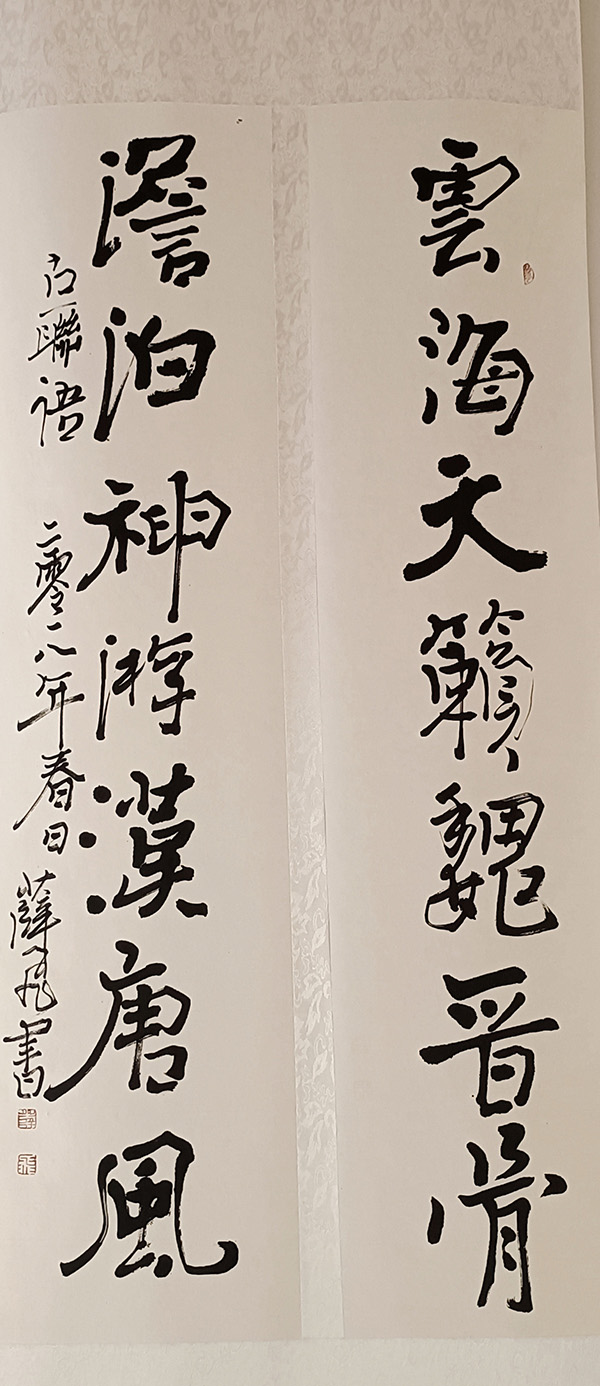 雲海天籟魏晉骨
澹泊神游漢唐風
古聯語 二零一八年春日 薛飛書